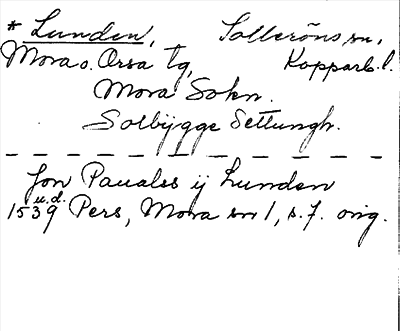 * Lunden, Solleröns sn,
Mora o. Orsa tg, Kopparb. l.
Mora Sokn.
Solbÿgge Settungh.
Jon Paualss ij Lunden
1539 u.d. Pers, Mora sn 1, s. 7. orig.